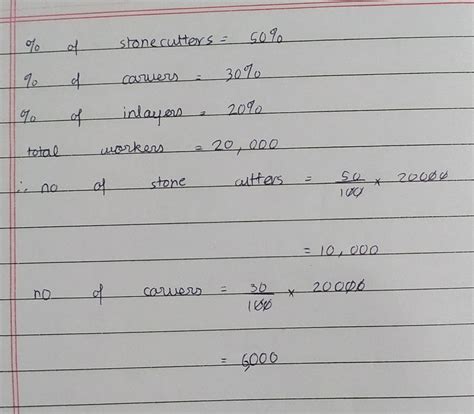 % of stonecutters = 50%
% of carvers = 30%
% of inlayers = 20%
total workers = 20,000
∴ no of stone cutters = 50/100 × 20000
= 10,000
no of carvers = 30/100 × 20000
= 6000